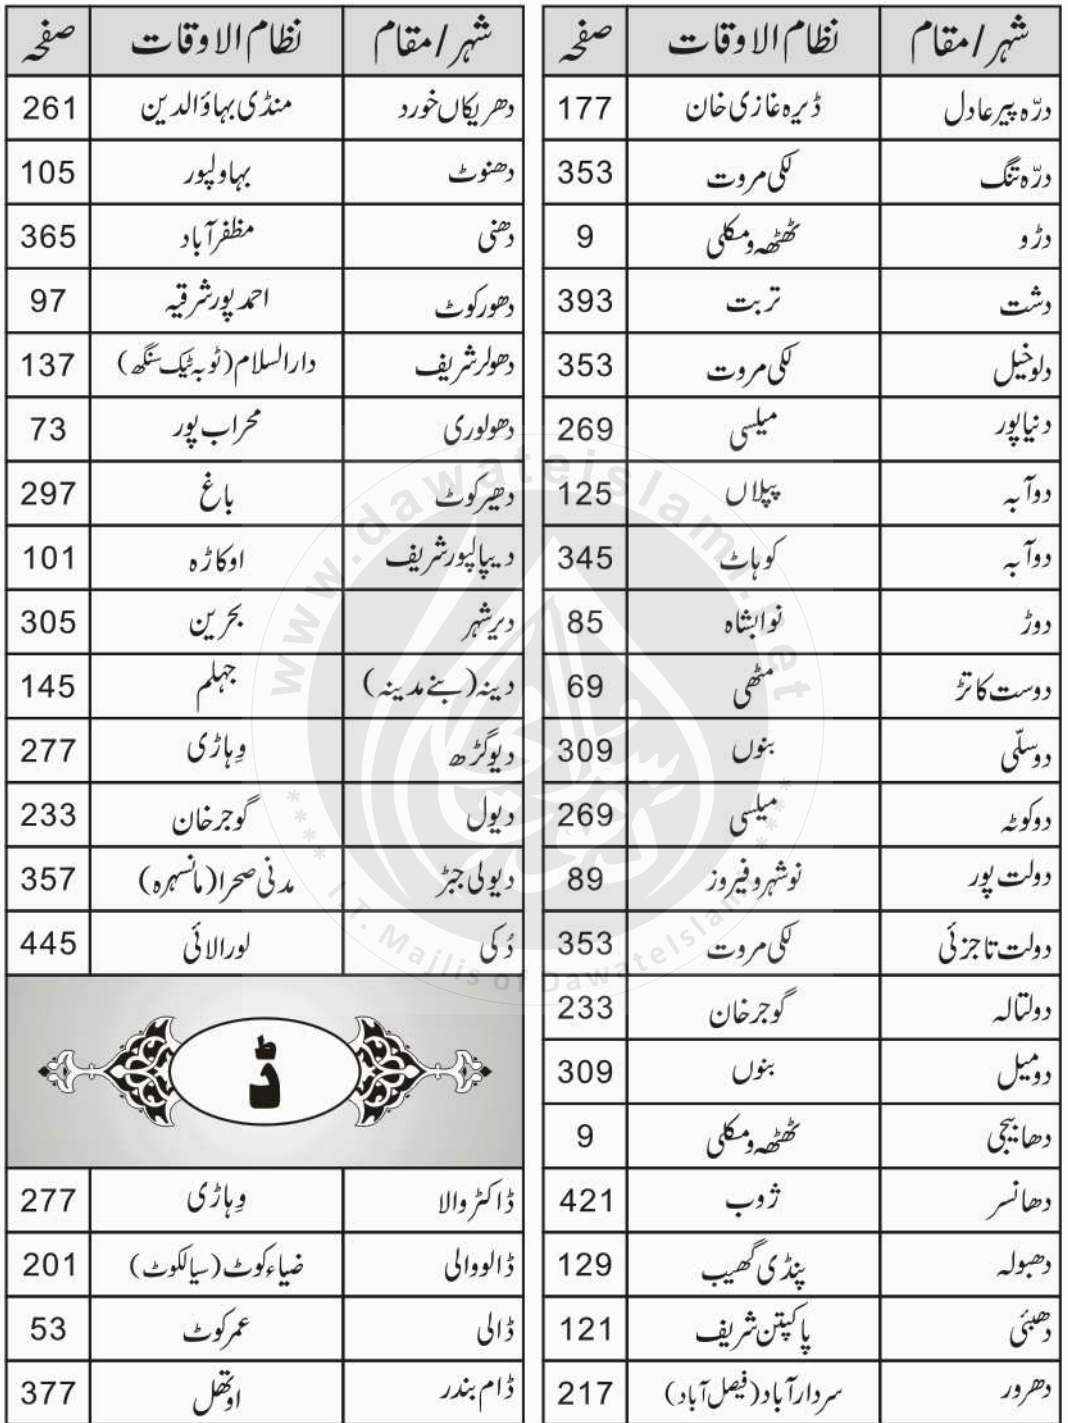 شہر/مقام نظام الاوقات صفحہ
درّہ پیر عادل ڈیرہ غازی خان 177
درّہ تنگ لکی مروت 353
دڑو ٹھٹھہ و مکلی 9
دشت تربت 393
دلوخیل لکی مروت 353
دنیاپور میلسی 269
دوآبہ پپلاں 125
دوآبہ کوہاٹ 345
دوڑ نوابشاہ 85
دوست کا تڑ مٹھی 69
دوسلّی بنوں 309
دوکوٹہ میلسی 269
دولت پور نوشہرو فیروز 89
دولت تاجزئی لکی مروت 353
دولتالہ گوجرخان 233
دومیل بنوں 309
دھابیجی ٹھٹھہ و مکلی 9
دھانسر ژوب 421
دھبولہ پنڈی گھیب 129
دھپئی پاکپتن شریف 121
دھرور سردارآباد (فیصل آباد) 217
شہر/مقام نظام الاوقات صفحہ
دھریکاں خورد منڈی بہاؤالدین 261
دھنوٹ بہاولپور 105
دھنی مظفرآباد 365
دھورکوٹ احمد پور شرقیہ 97
دھولر شریف دارالسلام (ٹوبہ ٹیک سنگھ) 137
دھولوری محراب پور 73
دھیرکوٹ باغ 297
دیپالپور شریف اوکاڑہ 101
دیر شہر بحرین 305
دینہ (بنے مدینہ) جہلم 145
دیوگڑھ وِہاڑی 277
دیول گوجرخان 233
دیولی جبڑ مدنی صحرا (مانسہرہ) 357
دُکی لورالائی 445
ڈ
ڈاکٹر والا وِہاڑی 277
ڈالووالی ضیاء کوٹ (سیالکوٹ) 201
ڈالی عمرکوٹ 53
ڈام بندر اوتھل 377
www.dawateislami.net
I.T. Majlis of DawateIslami